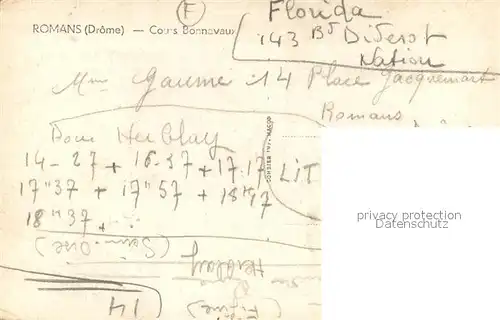 F
Florida
ROMANS (Drôme) — Cours Bonnevaux
143 Bd Diderot
Nation
Mme Gaume 14 Place Jacquemart
Romans
Pour Herblay
14-27 + 16.37 + 17.17
17"37 + 17"57 + 18H17
18H37 +
LIT
privacy protection
Datenschutz
(Seine Oise)
Herblay
14